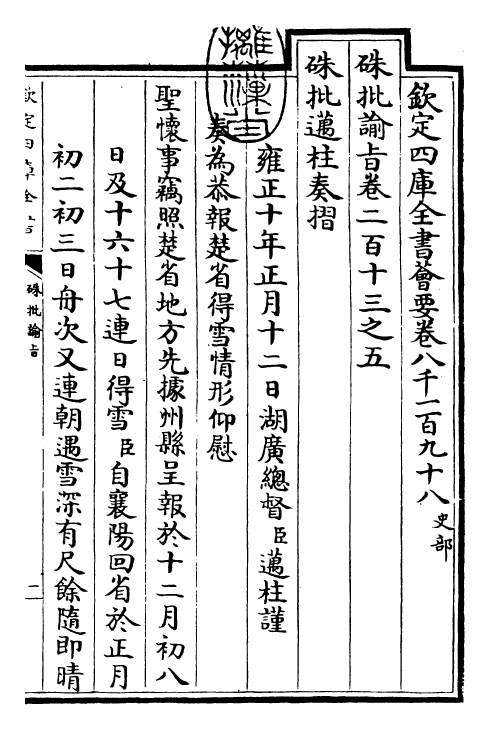 欽定四庫全書薈要卷八千一百九十八 史部
硃批諭旨卷二百十三之五
硃批邁柱奏摺
雍正十年正月十二日湖廣總督臣邁柱謹
奏為恭報楚省得雪情形仰慰
聖懷事竊照楚省地方先據州縣呈報於十二月初八
日及十六十七連日得雪臣自襄陽回省於正月
初二初三日舟次又連朝遇雪深有尺餘隨即晴
硃批諭旨